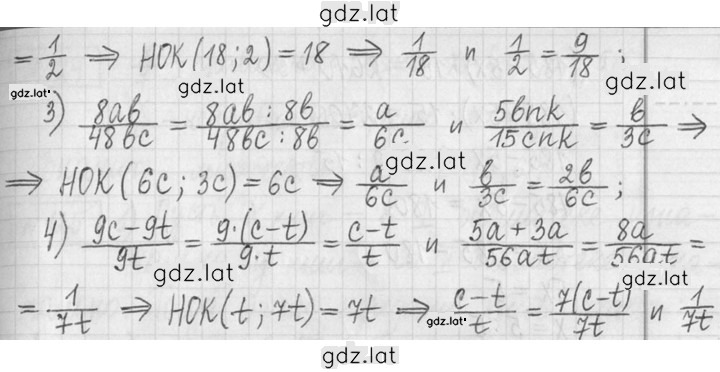 gdz.lat
= 1/2 ⇒ НОК(18; 2) = 18 ⇒ 1/18 и 1/2 = 9/18 ;
gdz.lat gdz.lat gdz.lat
3) 8ab/48bc = 8ab : 8b/48bc : 8b = a/6c и 5bnk/15cnk = b/3c ⇒
gdz.lat
⇒ НОК(6c; 3c) = 6c ⇒ a/6c и b/3c = 2b/6c ;
4) 9c − 9t/9t = 9·(c − t)/9·t = c − t/t и 5a + 3a/56at = 8a/56at =
gdz.lat gdz.lat
= 1/7t ⇒ НОК(t; 7t) = 7t ⇒ c − t/t = 7(c − t)/7t и 1/7t
gdz.lat
gdz.lat